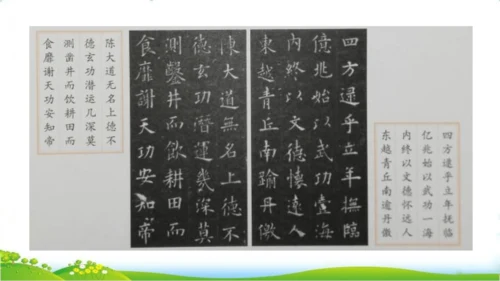 四方逮乎立年抚临
亿兆始以武功一海
内终以文德怀远人
东越青丘南逾丹徼
四方逮乎立年撫臨
億兆始以武功壹海
内終以文德懷遠人
東越青丘南踰丹徼
陳大道無名上德不
德玄功潛運幾深莫
測鑿井而飲耕田而
食靡謝天功安知帝
陈大道无名上德不
德玄功潜运几深莫
测凿井而饮耕田而
食靡谢天功安知帝